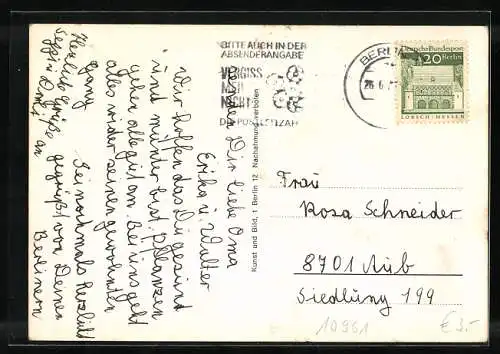 BITTE AUCH IN DER
ABSENDERANGABE
VERGISS
MEIN
NICHT
DIE POSTLEITZAHL
BERLIN
Deutsche Bundespost
20 Berlin
LORSCH/HESSEN
senden Dir liebe Oma
Erika u. Walter
Wir hoffen das Du gesund
und munter bist. Pflanzen
gehen alle gut an. Bei uns geht
alles wieder seinen gewohnten
Gang
Sei nochmals herzlich
gegrüßt von Deinen
Berlinern
Herzliche Grüße an
Sepp u.
Kunst und Bild, 1 Berlin 12 Nachahmung verboten
Frau
Rosa Schneider
8701 Aub
Siedlung 199
10961
€ 3.-